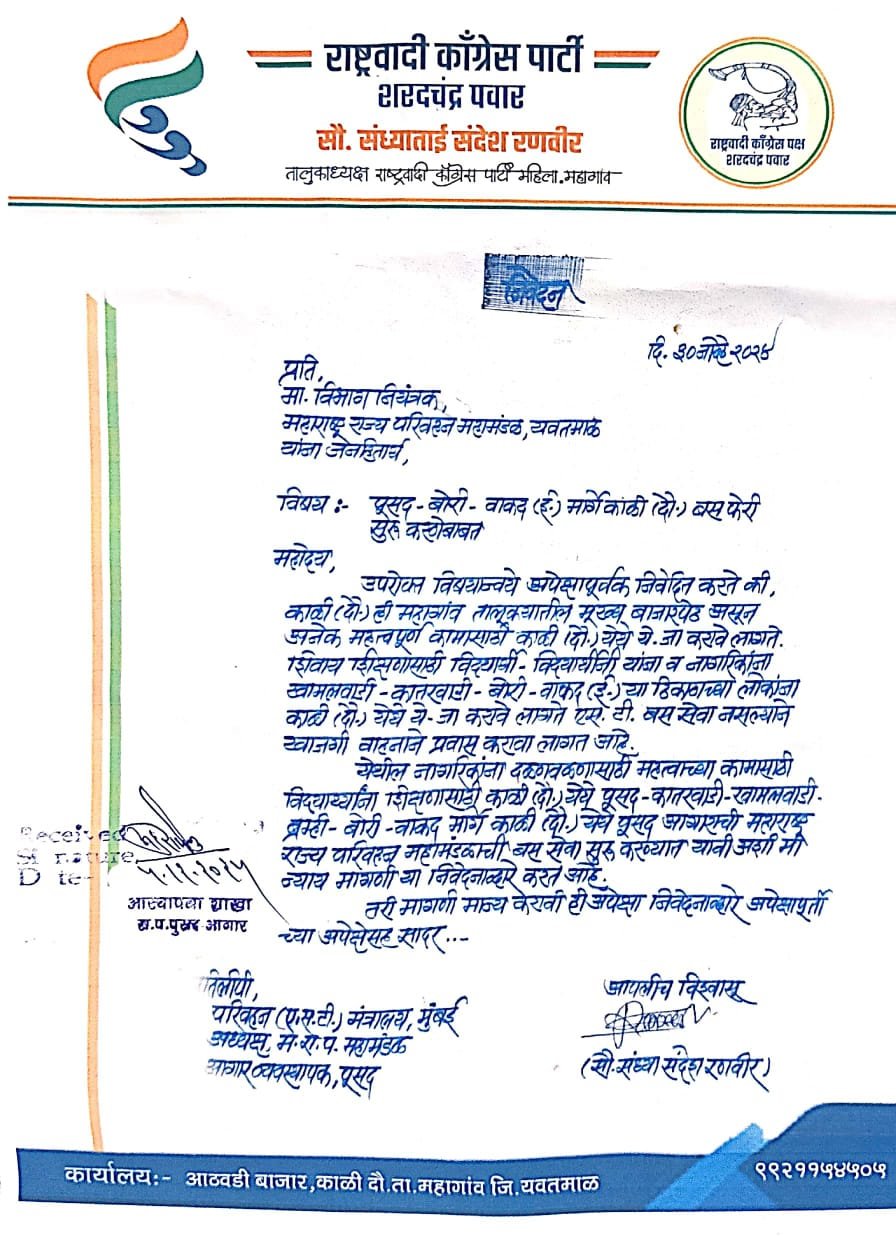 राष्ट्रवादी काँग्रेस पार्टी
शरदचंद्र पवार
सौ. संध्याताई संदेश रणवीर
तालुकाध्यक्ष राष्ट्रवादी काँग्रेस पार्टी महिला.महागांव
राष्ट्रवादी काँग्रेस पक्ष
शरदचंद्र पवार
निवेदन
दि. ३० ऑक्टो २०२५
प्रति,
मा. विभाग नियंत्रक,
महाराष्ट्र राज्य परिवहन महामंडळ, यवतमाळ
यांना जनहितार्थ,
विषय :- पूसद - बोरी - वाकद (ई.) मार्गे काळी (दौ.) बस फेरी
सुरू करणेबाबत
महोदय,
उपरोक्त विषयान्वये अपेक्षापूर्वक निवेदित करते की,
काळी (दौ.) ही महागांव तालूक्यातील मूख्य बाजारपेठ असून
अनेक महत्वपूर्ण कामासाठी काळी (दौ.) येथे ये. जा करावे लागते.
शिवाय शिक्षणासाठी विद्यार्थी - विद्यार्थीनी यांना व नागरिकांना
खामलवाडी - कातरवाडी - बोरी - वाकद (ई.) या ठिकाणच्या लोकांना
काळी (दौ.) येथे ये-जा करावे लागते एस. टी. बस सेवा नसल्याने
खाजगी वाहनाने प्रवास करावा लागत आहे.
येथील नागरिकांना दळणवळणासाठी महत्वाच्या कामासाठी
विद्यार्थ्यांना शिक्षणासाठी काळी (दौ.) येथे पूसद - कातरवाडी - खामलवाडी -
ब्रम्ही - बोरी - वाकद मार्गे काळी (दौ.) येथे पूसद आगाराची महाराष्ट्र
राज्य परिवहन महामंडळाची बस सेवा सुरू करण्यात यावी अशी मी
न्याय मागणी या निवेदनाव्दारे करते आहे.
तरी मागणी मान्य करावी ही अपेक्षा निवेदनाव्दारे अपेक्षापूर्ती
च्या अपेक्षेसह सादर...
Received
५.१२.२०२५
आस्थापना शाखा
रा.प.पुसद आगार
तिलीपी,
परिवहन (एस.टी.) मंत्रालय, मुंबई
अध्यक्ष, म.रा.प. महामंडळ
आगार व्यवस्थापक, पूसद
आपलीच विश्वासू
(सौ. संध्या संदेश रणवीर)
कार्यालय:- आठवडी बाजार,काळी दौ.ता.महागांव जि.यवतमाळ
९९२११५४५०५